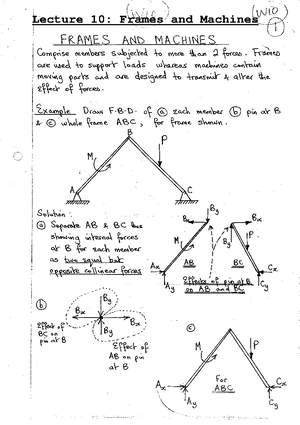 W10
Lecture 10: Frames and Machines
1
FRAMES AND MACHINES
Comprise members subjected to more than 2 forces. Frames
are used to support loads whereas machines contain
moving parts and are designed to transmit & alter the
effect of forces.
Example Draw F.B.D. of (a) each member (b) pin at B
& (c) whole frame ABC, for frame shown.
B
M
P
A
C
Solution:
(a) Separate AB & BC thus
showing internal forces
at B for each member
as two equal but
opposite collinear forces
By
Bx
Bx
By
P
M
AB
BC
Ax
Ay
Cx
Cy
Effects of pin at B
on AB and BC
(b)
By
Bx
Bx
By
Effect of
BC on
pin at B
Effect of
AB on pin
at B
(c)
M
P
For
ABC
Ax
Ay
Cx
Cy